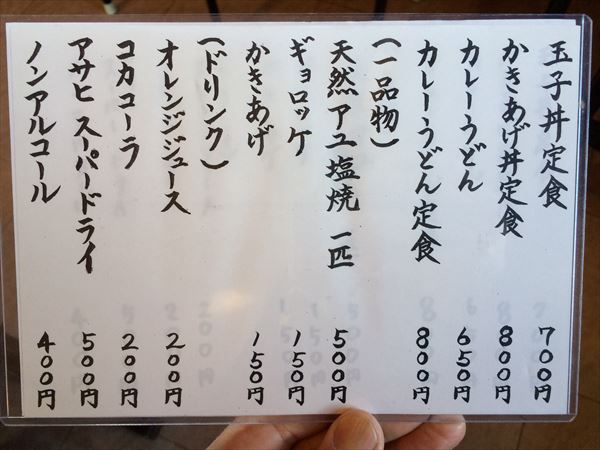 玉子丼定食 700円
かきあげ丼定食 800円
カレーうどん 650円
カレーうどん定食 800円
(一品物)
天然アユ塩焼 一匹 500円
ギョロッケ 150円
かきあげ 150円
(ドリンク)
オレンジジュース 200円
コカコーラ 200円
アサヒ スーパードライ 500円
ノンアルコール 400円